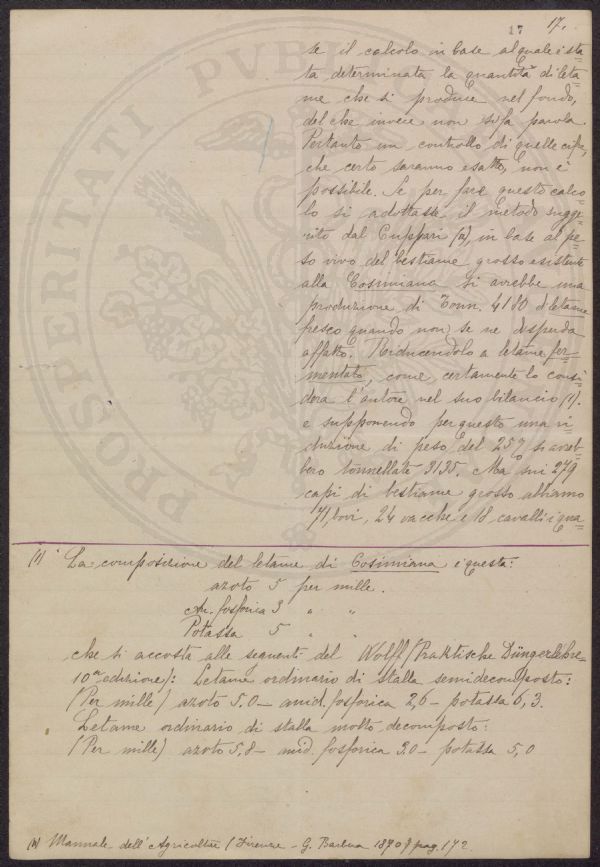 17 17.
se il calcolo in base al quale è sta=
ta determinata la quantità di leta=
me che si produce nel fondo,
del che invece non si fa parola.
Pertanto un controllo di quelle cifre,
che certo saranno esatte, non è
possibile. Se per fare questo calco=
lo si adottasse il metodo sugge=
rito dal Cuppari (a), in base al pe=
so vivo del bestiame grosso esistente
alla Cosimiana si avrebbe una
produzione di Tonn. 4180 di letame
fresco quando non se ne disperda
affatto. Riducendolo a letame fer=
mentato, come certamente lo consi=
dera l'autore nel suo bilancio (1).
e supponendo per questo una ri=
duzione di peso del 25% si avreb=
bero tonnellate 3135. Ma sui 279
capi di bestiame grosso abbiamo
171 bovi, 24 vacche e 18 cavalli i qua=
(1) La composizione del letame di Cosimiana è questa:
azoto 5 per mille.
An. fosforica 3 " "
Potassa 5 " "
che si accosta alle seguenti del Wolff (Praktische Düngerlehre
10a edizione): Letame ordinario di stalla semidecomposto:
(Per mille) azoto 5,0 – anid. fosforica 2,6 – potassa 6,3.
Letame ordinario di stalla molto decomposto:
(Per mille) azoto 5,8 – anid. fosforica 3.0 – potassa 5,0
(a) Manuale dell'Agricoltore (Firenze – G. Barbèra 1870) pag. 172.
PROSPERITATI PUBLI